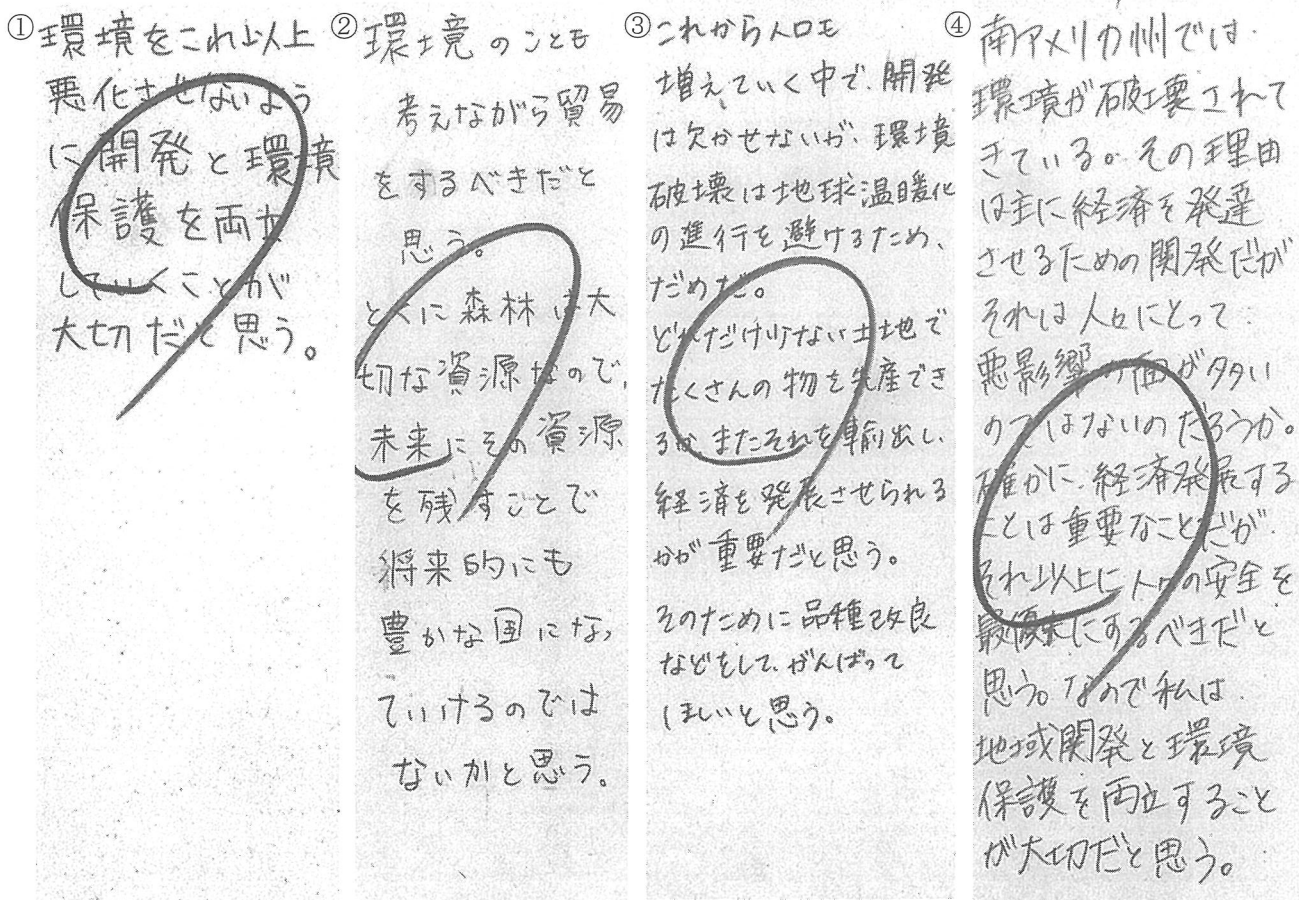 ①
環境をこれ以上
悪化させないよう
に開発と環境
保護を両立
していくことが
大切だと思う。
②
環境のことも
考えながら貿易
をするべきだと
思う。
とくに森林は大
切な資源なので、
未来にその資源
を残すことで
将来的にも
豊かな国になっ
ていけるのでは
ないかと思う。
③
これから人口も
増えていく中で、開発
は欠かせないが、環境
破壊は地球温暖化
の進行を避けるため、
だめだ。
どれだけ少ない土地で
たくさんの物を生産でき
るか、またそれを輸出し、
経済を発展させられる
かが重要だと思う。
そのために品種改良
などをして、がんばって
ほしいと思う。
④
南アメリカ州では
環境が破壊されて
きている。その理由
は主に経済を発達
させるための開発だが
それは人々にとって
悪影響の面が多い
のではないのだろうか。
確かに、経済発展する
ことは重要なことだが、
それ以上に人々の安全を
最優先にするべきだと
思う。なので私は、
地域開発と環境
保護を両立すること
が大切だと思う。